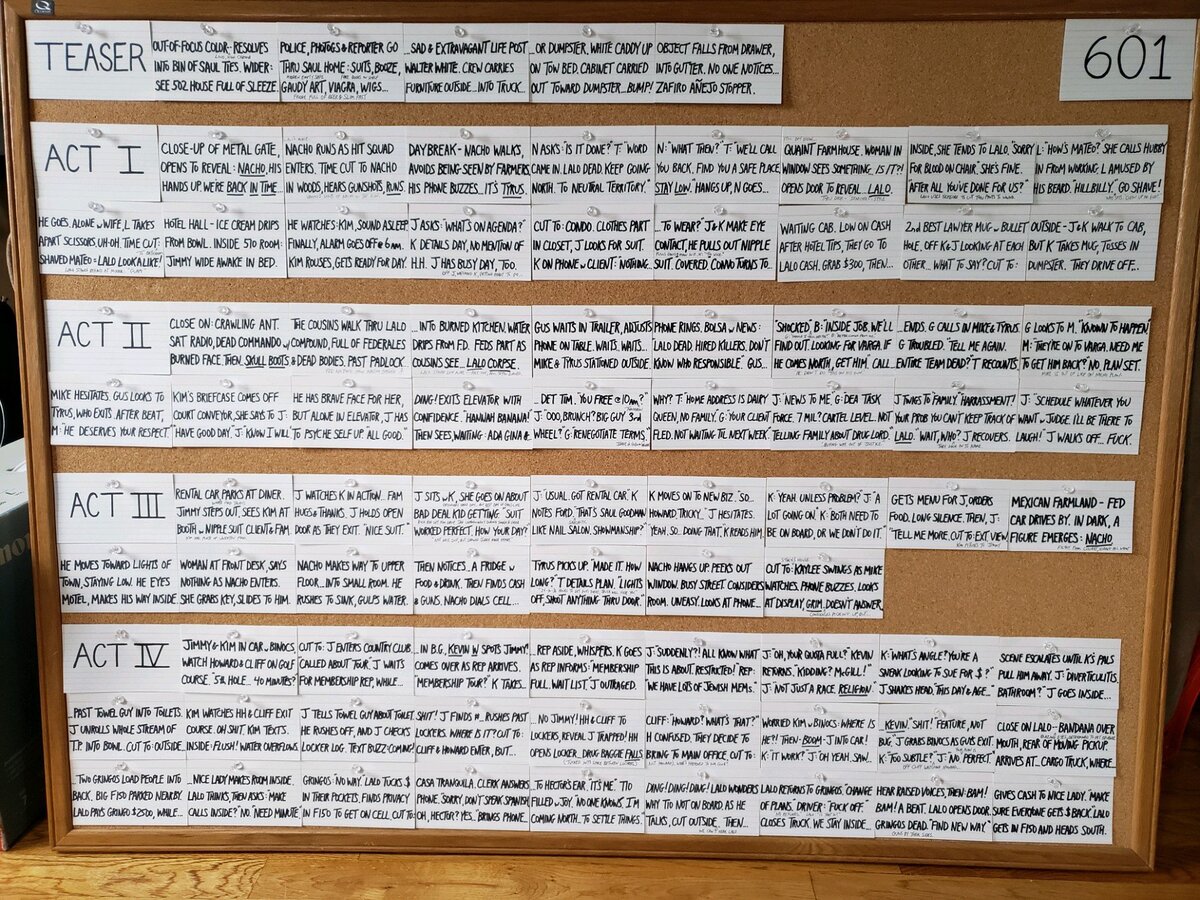 601
TEASER
OUT-OF-FOCUS COLOR- RESOLVES
INTO BIN OF SAUL TIES. WIDER:
SEE 502 HOUSE FULL OF SLEEZE.
POLICE, PHOTOGS & REPORTER GO
THRU SAUL HOME: SUITS, BOOZE,
GAUDY ART, VIAGRA, WIGS...
...SAD & EXTRAVAGANT LIFE POST
WALTER WHITE. CREW CARRIES
FURNITURE OUTSIDE... INTO TRUCK...
...OR DUMPSTER, WHITE CADDY UP
ON TOW BED. CABINET CARRIED
OUT TOWARD DUMPSTER... BUMP!
OBJECT FALLS FROM DRAWER,
INTO GUTTER. NO ONE NOTICES...
ZAFIRO AÑEJO STOPPER.
ACT I
CLOSE-UP OF METAL GATE,
OPENS TO REVEAL: NACHO, HIS
HANDS UP. WE'RE BACK IN TIME.
NACHO RUNS AS HIT SQUAD
ENTERS. TIME CUT TO NACHO
IN WOODS, HEARS GUNSHOTS, RUNS
DAYBREAK - NACHO WALKS,
AVOIDS BEING SEEN BY FARMERS,
HIS PHONE BUZZES. IT'S TYRUS.
N ASKS: "IS IT DONE?" T: "WORD
CAME IN. LALO DEAD. KEEP GOING
NORTH. TO NEUTRAL TERRITORY."
N: "WHAT THEN?" T: "WE'LL CALL
YOU BACK. FIND YOU A SAFE PLACE,
STAY LOW." HANGS UP, N GOES...
QUAINT FARMHOUSE. WOMAN IN
WINDOW SEES SOMETHING. IS IT?!
OPENS DOOR TO REVEAL... LALO.
INSIDE, SHE TENDS TO LALO. "SORRY
FOR BLOOD ON CHAIR." SHE'S FINE.
"AFTER ALL YOU'VE DONE FOR US?"
L: "HOW'S MATEO?" SHE CALLS HUBBY
IN FROM WORKING. L AMUSED BY
HIS BEARD. "HILLBILLY." GO SHAVE!
HE GOES. ALONE w WIFE, L TAKES
APART SCISSORS. UH-OH. TIME CUT:
SHAVED MATEO = LALO LOOKALIKE!
HOTEL HALL - ICE CREAM DRIPS
FROM BOWL. INSIDE 510 ROOM:
JIMMY WIDE AWAKE IN BED.
HE WATCHES KIM, SOUND ASLEEP.
FINALLY, ALARM GOES OFF @ 6am.
KIM ROUSES, GETS READY FOR DAY.
J ASKS: "WHAT'S ON AGENDA?"
K DETAILS DAY, NO MENTION OF
H.H. J HAS BUSY DAY, TOO.
CUT TO: CONDO. CLOTHES PART
IN CLOSET, J LOOKS FOR SUIT.
K ON PHONE w CLIENT: "NOTHING...
...TO WEAR?" J & K MAKE EYE
CONTACT, HE PULLS OUT NIPPLE
SUIT. COVERED. CONVO TURNS TO...
WAITING CAB. LOW ON CASH
AFTER HOTEL TIPS, THEY GO TO
LALO CASH. GRAB $300, THEN...
2nd BEST LAWYER MUG w BULLET
HOLE. OFF K & J LOOKING AT EACH
OTHER... WHAT TO SAY? CUT TO:
OUTSIDE - J & K WALK TO CAB,
BUT K TAKES MUG, TOSSES IN
DUMPSTER. THEY DRIVE OFF...
ACT II
CLOSE ON: CRAWLING ANT.
SAT RADIO, DEAD COMMANDO w
BURNED FACE. THEN, SKULL BOOTS
THE COUSINS WALK THRU LALO
COMPOUND, FULL OF FEDERALES
& DEAD BODIES. PAST PADLOCK
...INTO BURNED KITCHEN. WATER
DRIPS FROM FD. FEDS PART AS
COUSINS SEE... LALO CORPSE.
GUS WAITS IN TRAILER, ADJUSTS
PHONE ON TABLE. WAITS. WAITS...
MIKE & TYRUS STATIONED OUTSIDE
PHONE RINGS. BOLSA w NEWS:
LALO DEAD. HIRED KILLERS. DON'T
KNOW WHO RESPONSIBLE." GUS...
"SHOCKED." B: "INSIDE JOB. WE'LL
FIND OUT. LOOKING FOR VARGA. IF
HE COMES NORTH, GET HIM." CALL...
...ENDS. G CALLS IN MIKE & TYRUS.
G TROUBLED. "TELL ME AGAIN.
ENTIRE TEAM DEAD?" T RECOUNTS.
G LOOKS TO M. "KNOWN TO HAPPEN"
M: "THEY'RE ON TO VARGA. NEED ME
TO GET HIM BACK?" NO. PLAN SET.
MIKE HESITATES. GUS LOOKS TO
TYRUS, WHO EXITS. AFTER BEAT,
M: "HE DESERVES YOUR RESPECT."
KIM'S BRIEFCASE COMES OFF
COURT CONVEYOR, SHE SAYS TO J
"HAVE GOOD DAY." J: "KNOW I WILL"
HE HAS BRAVE FACE FOR HER,
BUT ALONE IN ELEVATOR, J HAS
TO PSYCHE SELF UP. "ALL GOOD."
DING! EXITS ELEVATOR WITH
CONFIDENCE. "HANNAH BANANA!"
THEN SEES, WAITING: ADA GINA &
...DET TIM. "YOU FREE @ 10am?"
J: "OOO, BRUNCH? BIG GUY 3rd
WHEEL?" G: "RENEGOTIATE TERMS."
WHY? T: "HOME ADDRESS IS DAIRY
QUEEN, NO FAMILY." G: "YOUR CLIENT
FLED. NOT WAITING TIL NEXT WEEK."
J: "NEWS TO ME." G: "DEA TASK
FORCE. 7 MIL? CARTEL LEVEL. NOT
TELLING FAMILY ABOUT DRUG LORD."
J TWIGS TO FAMILY. "HARASSMENT!
OUR PROBS YOU CAN'T KEEP TRACK OF
LALO." "WAIT, WHO?" J RECOVERS.
J: "SCHEDULE WHATEVER YOU
WANT w JUDGE. I'LL BE THERE TO
LAUGH." J WALKS OFF... FUCK.
ACT III
RENTAL CAR PARKS AT DINER.
JIMMY STEPS OUT, SEES KIM AT
BOOTH w NIPPLE SUIT CLIENT & FAM.
J WATCHES K IN ACTION. FAM
HUGS & THANKS. J HOLDS OPEN
DOOR AS THEY EXIT. "NICE SUIT."
J SITS w K, SHE GOES ON ABOUT
BAD DEAL KID GETTING. "SUIT
WORKED PERFECT, HOW YOUR DAY?
J: "USUAL. GOT RENTAL CAR." K
NOTES FORD. "THAT SAUL GOODMAN
LIKE NAIL SALON, SHOWMANSHIP?"
K MOVES ON TO NEW BIZ. "SO...
HOWARD TRICKY." J HESITATES.
"YEAH. SO... DOING THAT." K READS HIM.
K: "YEAH. UNLESS PROBLEM?" J: "A
LOT GOING ON." K: "BOTH NEED TO
BE ON BOARD, OR WE DON'T DO IT."
GETS MENU FOR J, ORDERS
FOOD. LONG SILENCE. THEN, J:
"TELL ME MORE." CUT TO EXT. VIEW
MEXICAN FARMLAND - FED
CAR DRIVES BY. IN DARK, A
FIGURE EMERGES: NACHO.
HE MOVES TOWARD LIGHTS OF
TOWN, STAYING LOW. HE EYES
MOTEL, MAKES HIS WAY INSIDE.
WOMAN AT FRONT DESK, SAYS
NOTHING AS NACHO ENTERS.
SHE GRABS KEY, SLIDES TO HIM.
NACHO MAKES WAY TO UPPER
FLOOR... INTO SMALL ROOM. HE
RUSHES TO SINK, GULPS WATER.
THEN NOTICES, A FRIDGE w
FOOD & DRINK. THEN FINDS CASH
& GUNS. NACHO DIALS CELL...
TYRUS PICKS UP. "MADE IT. HOW
LONG?" T DETAILS PLAN. "LIGHTS
OFF, SHOOT ANYTHING THRU DOOR."
NACHO HANGS UP. PEEKS OUT
WINDOW. BUSY STREET. CONSIDERS
ROOM. UNEASY. LOOKS AT PHONE...
CUT TO: KAYLEE SWINGS AS MIKE
WATCHES. PHONE BUZZES, LOOKS
AT DISPLAY, GRIM. DOESN'T ANSWER.
ACT IV
JIMMY & KIM IN CAR w BINOCS,
WATCH HOWARD & CLIFF ON GOLF
COURSE. "5th HOLE... 40 MINUTES?"
CUT TO: J ENTERS COUNTRY CLUB,
"CALLED ABOUT TOUR." J WAITS
FOR MEMBERSHIP REP, WHILE...
...IN B.G, KEVIN W SPOTS JIMMY!
COMES OVER AS REP ARRIVES.
MEMBERSHIP TOUR?" K TAKES...
REP ASIDE, WHISPERS. K GOES
AS REP INFORMS: "MEMBERSHIP
FULL. WAIT LIST." J OUTRAGED.
J: "SUDDENLY?! ALL KNOW WHAT
THIS IS ABOUT. RESTRICTED!" REP:
"WE HAVE LOTS OF JEWISH MEMS."
J: "OH, YOUR QUOTA FULL?" KEVIN
RETURNS. "KIDDING? McGILL!"
J: "NOT JUST A RACE. RELIGION."
K: "WHAT'S ANGLE? YOU'RE A
SNEAK LOOKING TO SUE FOR $?"
J SHAKES HEAD, "THIS DAY & AGE..."
SCENE ESCALATES UNTIL K'S PALS
PULL HIM AWAY. J: "DIVERTICULITIS.
BATHROOM?" J GOES INSIDE...
...PAST TOWEL GUY INTO TOILETS.
J UNROLLS WHOLE STREAM OF
T.P. INTO BOWL. CUT TO: OUTSIDE.
KIM WATCHES HH & CLIFF EXIT
COURSE. OH SHIT. KIM TEXTS.
INSIDE: FLUSH! WATER OVERFLOWS
J TELLS TOWEL GUY ABOUT TOILET.
HE RUSHES OFF, AND J CHECKS
LOCKER LOG. TEXT BUZZ: COMING!
SHIT! J FINDS #... RUSHES PAST
LOCKERS. WHERE IS IT? CUT TO:
CLIFF & HOWARD ENTER, BUT...
...NO JIMMY! HH & CLIFF TO
LOCKERS, REVEAL J TRAPPED! HH
OPENS LOCKER. DRUG BAGGIE FALLS
CLIFF: "HOWARD? WHAT'S THAT?"
H CONFUSED. THEY DECIDE TO
BRING TO MAIN OFFICE. CUT TO:
WORRIED KIM w BINOCS: WHERE IS
HE?! THEN- BOOM- J INTO CAR!
K: "IT WORK?" J: "OH YEAH. SAW...
KEVIN." "SHIT!" "FEATURE, NOT
BUG." J GRABS BINOCS AS GUYS EXIT.
K: "TOO SUBTLE?" J: "NO. PERFECT."
CLOSE ON LALO - BANDANA OVER
MOUTH, REAR OF MOVING PICKUP.
ARRIVES AT... CARGO TRUCK, WHERE...
...TWO GRINGOS LOAD PEOPLE INTO
BACK. BIG F150 PARKED NEARBY.
LALO PAYS GRINGO $2500, WHILE...
...NICE LADY MAKES ROOM INSIDE.
LALO THINKS, THEN ASKS: "MAKE
CALLS INSIDE?" NO. "NEED MINUTE"
GRINGOS: "NO WAY." LALO TUCKS $
IN THEIR POCKETS. FINDS PRIVACY
IN F150 TO GET ON CELL. CUT TO:
CASA TRANQUILA. CLERK ANSWERS
PHONE. "SORRY, DON'T SPEAK SPANISH
OH, HECTOR? YES..." BRINGS PHONE...
...TO HECTOR'S EAR. "IT'S ME." TIO
FILLED w JOY. "NO ONE KNOWS. I'M
COMING NORTH... TO SETTLE THINGS.
DING! DING! DING! LALO WONDERS
WHY TIO NOT ON BOARD. AS HE
TALKS, CUT OUTSIDE. THEN...
LALO RETURNS TO GRINGOS. "CHANGE
OF PLANS." DRIVER: "FUCK OFF."
CLOSES TRUCK. WE STAY INSIDE...
HEAR RAISED VOICES, THEN: BAM!
BAM! A BEAT. LALO OPENS DOOR.
GRINGOS DEAD. "FIND NEW WAY."
GIVES CASH TO NICE LADY. "MAKE
SURE EVERYONE GETS $ BACK. LALO
GETS IN F150 AND HEADS SOUTH.